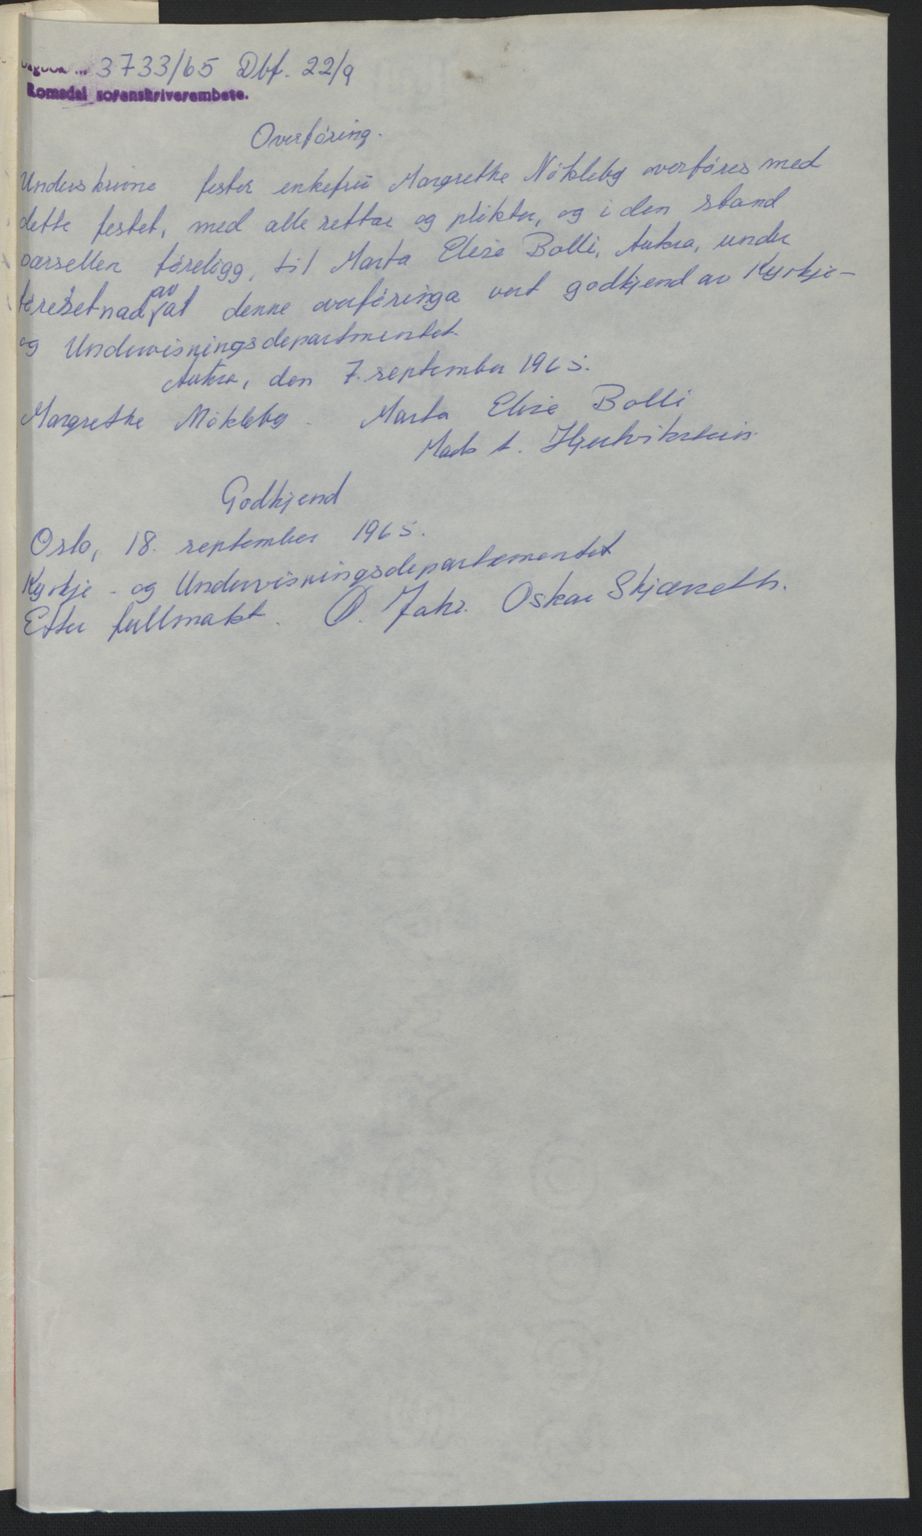 3733/65 Dbf. 22/9
Romsdal sorenskriverembete.
Overföring.
Underskrivne fester enkefru Margrethe Nökleby overföres med
dette festet, med alle rettar og plikter, og i den stand
parsellen föreligg, til Marta Elise Bolli, Aukra, under
föresetnad av at denne overföringa vert godkjend av Kyrkje-
og Undervisningsdepartmentet.
Aukra, den 7. september 1965.
Margrethe Nökleby. Marta Elise Bolli
Mads A.
Godkjend
Oslo, 18. september 1965.
Kyrkje- og Undervisningsdepartementet
Etter fullmakt. O. Jahr. Oskar Skjærseth.